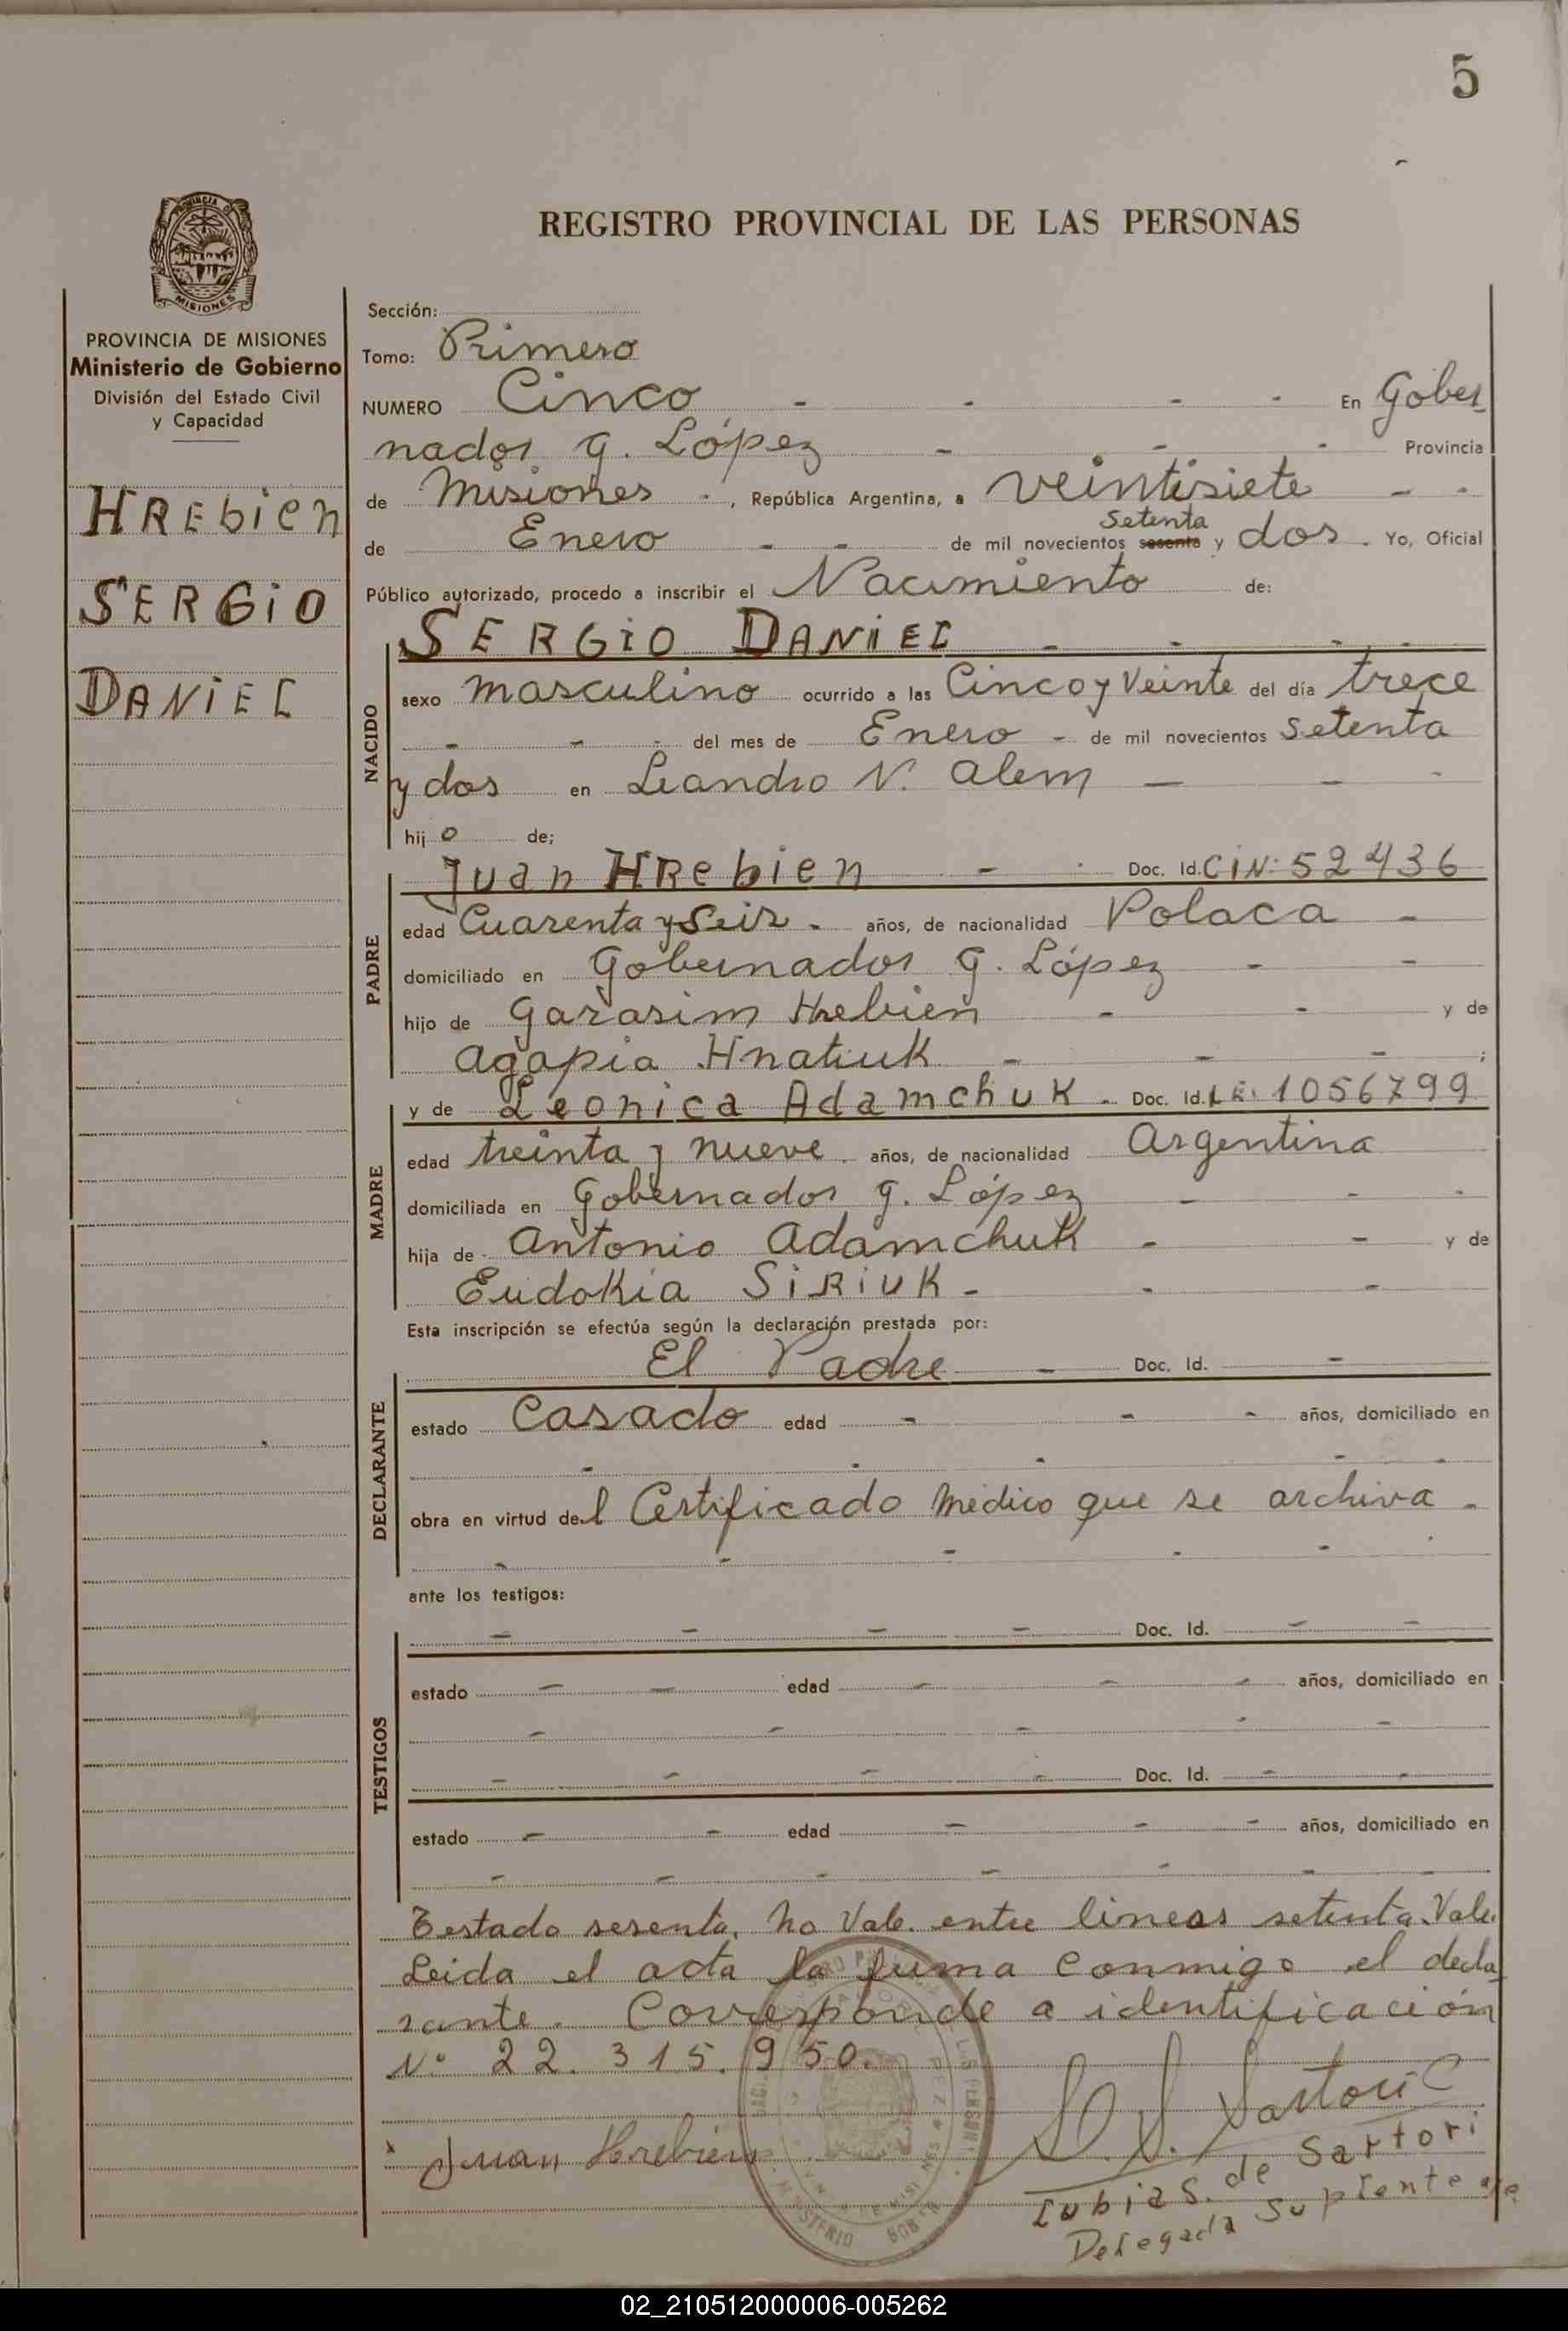 5
REGISTRO PROVINCIAL DE LAS PERSONAS
PROVINCIA DE MISIONES
Ministerio de Gobierno
División del Estado Civil
y Capacidad
HREbien
SERGiO
DANiEL
Sección:
Tomo: Primero
NUMERO Cinco - - - - En Gober
nador G. López - - - Provincia
de Misiones -, República Argentina, a veintisiete - -
de Enero - - de mil novecientos sesenta Setenta y dos. Yo, Oficial
Público autorizado, procedo a inscribir el Nacimiento de:
NACIDO
SERGiO DANiEL - - - -
sexo masculino ocurrido a las Cinco y Veinte del día trece
- - - del mes de Enero - de mil novecientos setenta
y dos en Leandro N. Alem - - -
hij o de;
PADRE
Juan HRebien - - Doc. Id. CiN: 52436
edad Cuarenta y Seis - años, de nacionalidad Polaca -
domiciliado en Gobernador G. López - -
hijo de Garasim Hrebien - - y de
Agapia Hnatiuk - - - ;
MADRE
y de Leonica Adamchuk - Doc. Id. LE: 1056799
edad treinta y nueve - años, de nacionalidad Argentina
domiciliada en Gobernador G. López - - -
hija de Antonio Adamchuk - - y de
Eudokia SiRiuk - - -
Esta inscripción se efectúa según la declaración prestada por:
DECLARANTE
El Padre - Doc. Id. -
estado Casado edad - - - años, domiciliado en
- - - - -
obra en virtud del Certificado médico que se archiva -
- - - - - -
ante los testigos:
TESTIGOS
- - - - Doc. Id. - -
estado - - edad - - - años, domiciliado en
- - - - -
- - - - Doc. Id. - -
estado - - edad - - - años, domiciliado en
- - - - - - -
Testado sesenta. no Vale. entre lineas setenta. Vale.
Leida el acta la firma Conmigo el decla
rante. Corresponde a identificación
Nº 22.315.950.
Juan Hrebien
Sartori
de Sartori
Delegada Suplente
02_210512000006-005262